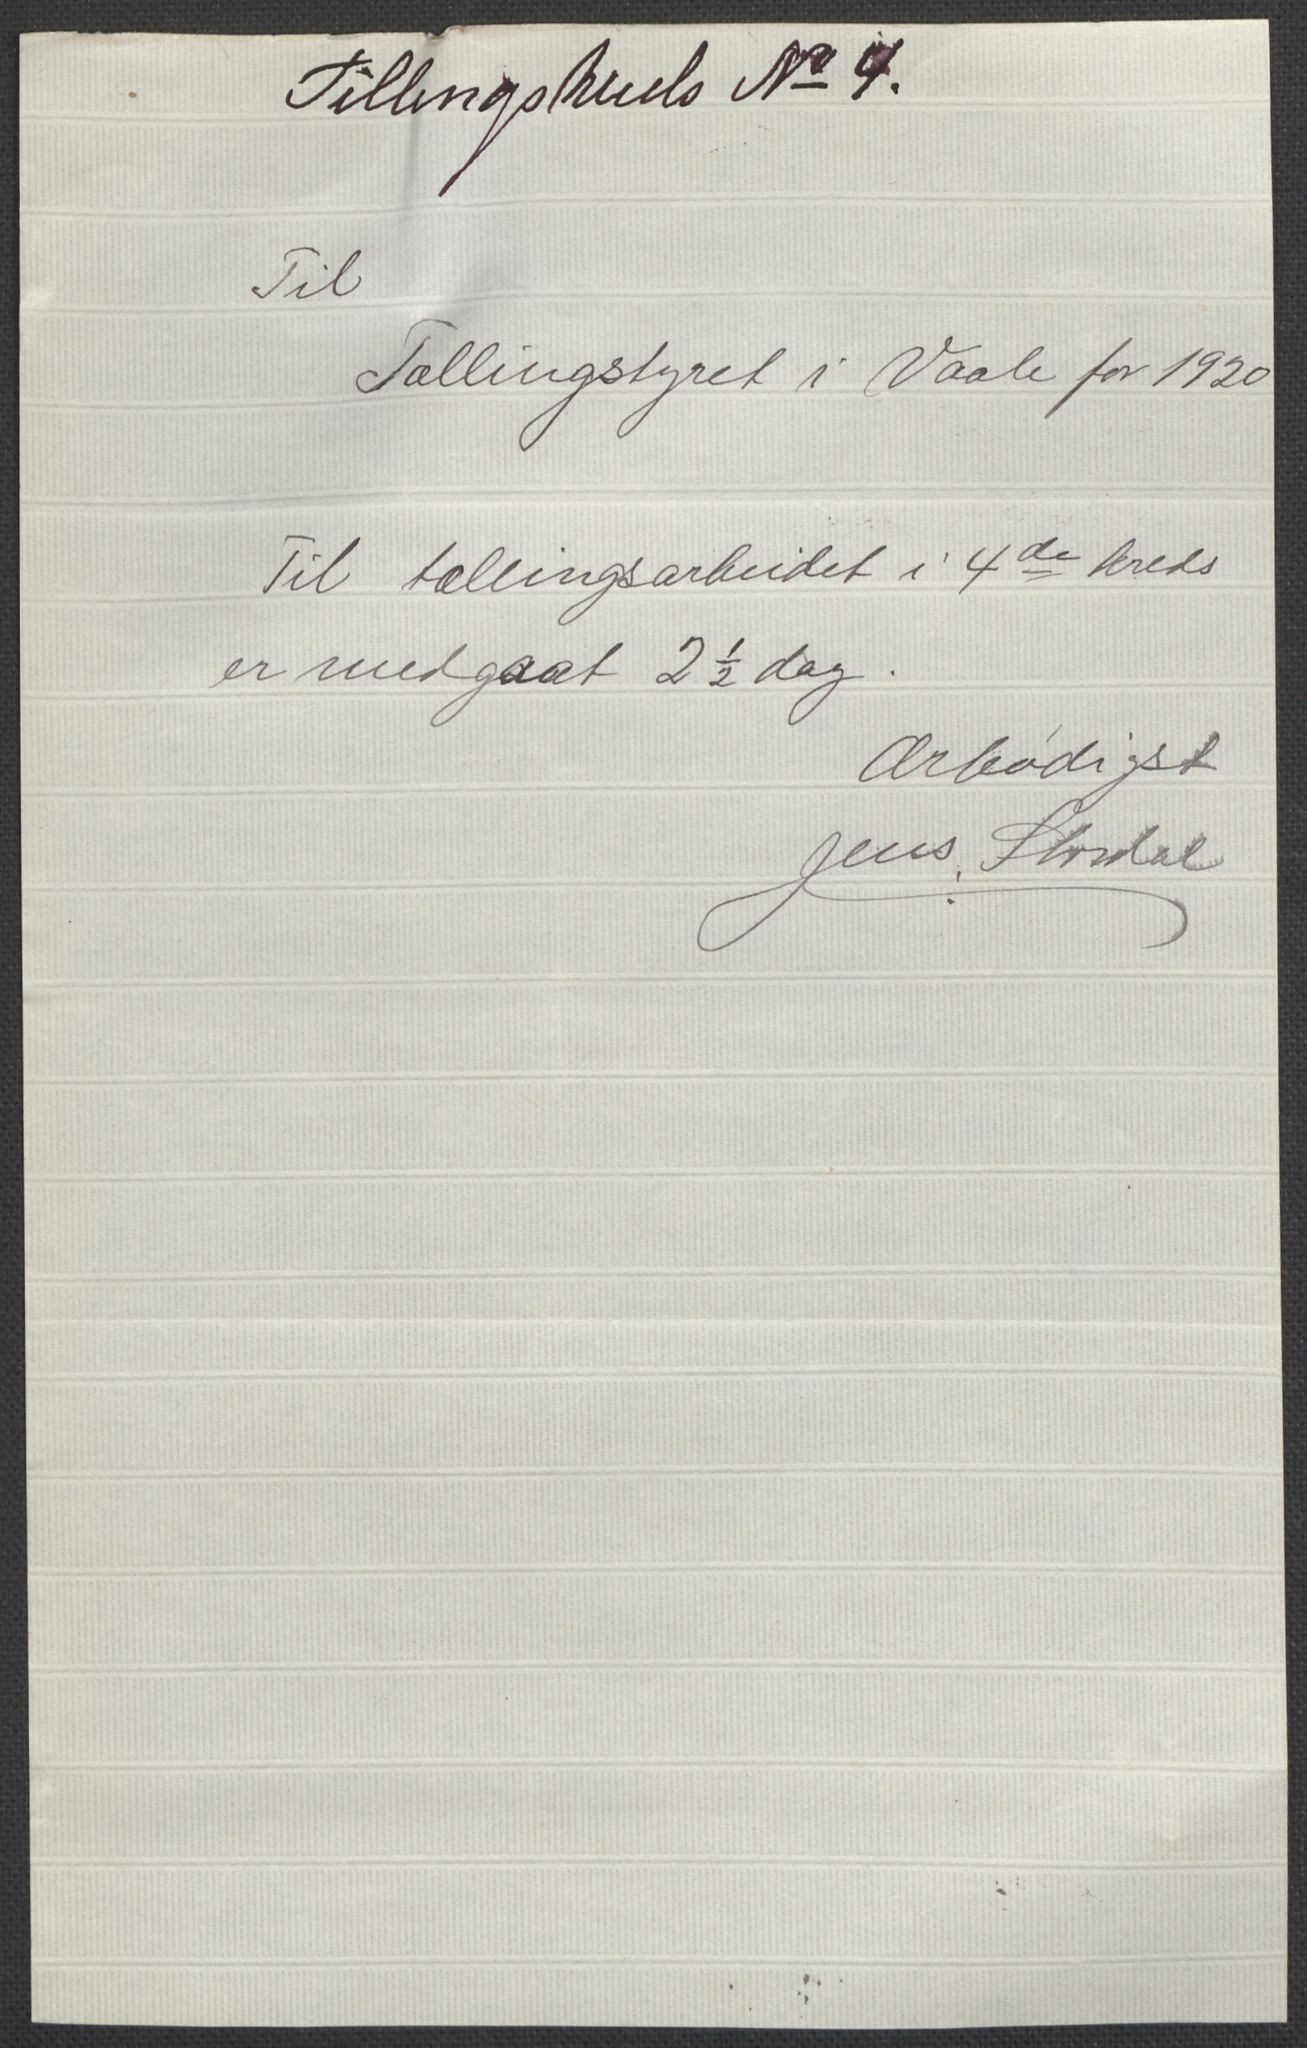 Tellingskreds No 4.
Til
Tællingstyret i Vaale for 1920
Til tællingsarbeidet i 4de kreds
er medgaat 2 1/2 dag.
Ærbødigst
Jens